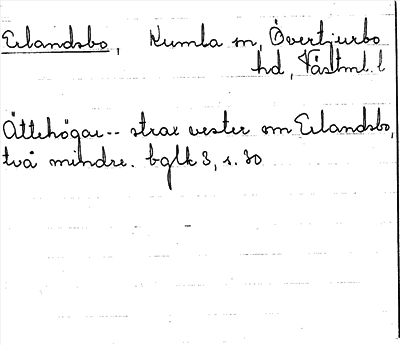 Erlandsbo, Kumla sn, Övertjurbo
hd, Västml. l
Ättehögar -- strax vester om Erlandsbo,
två mindre. bglk 3, s. 30